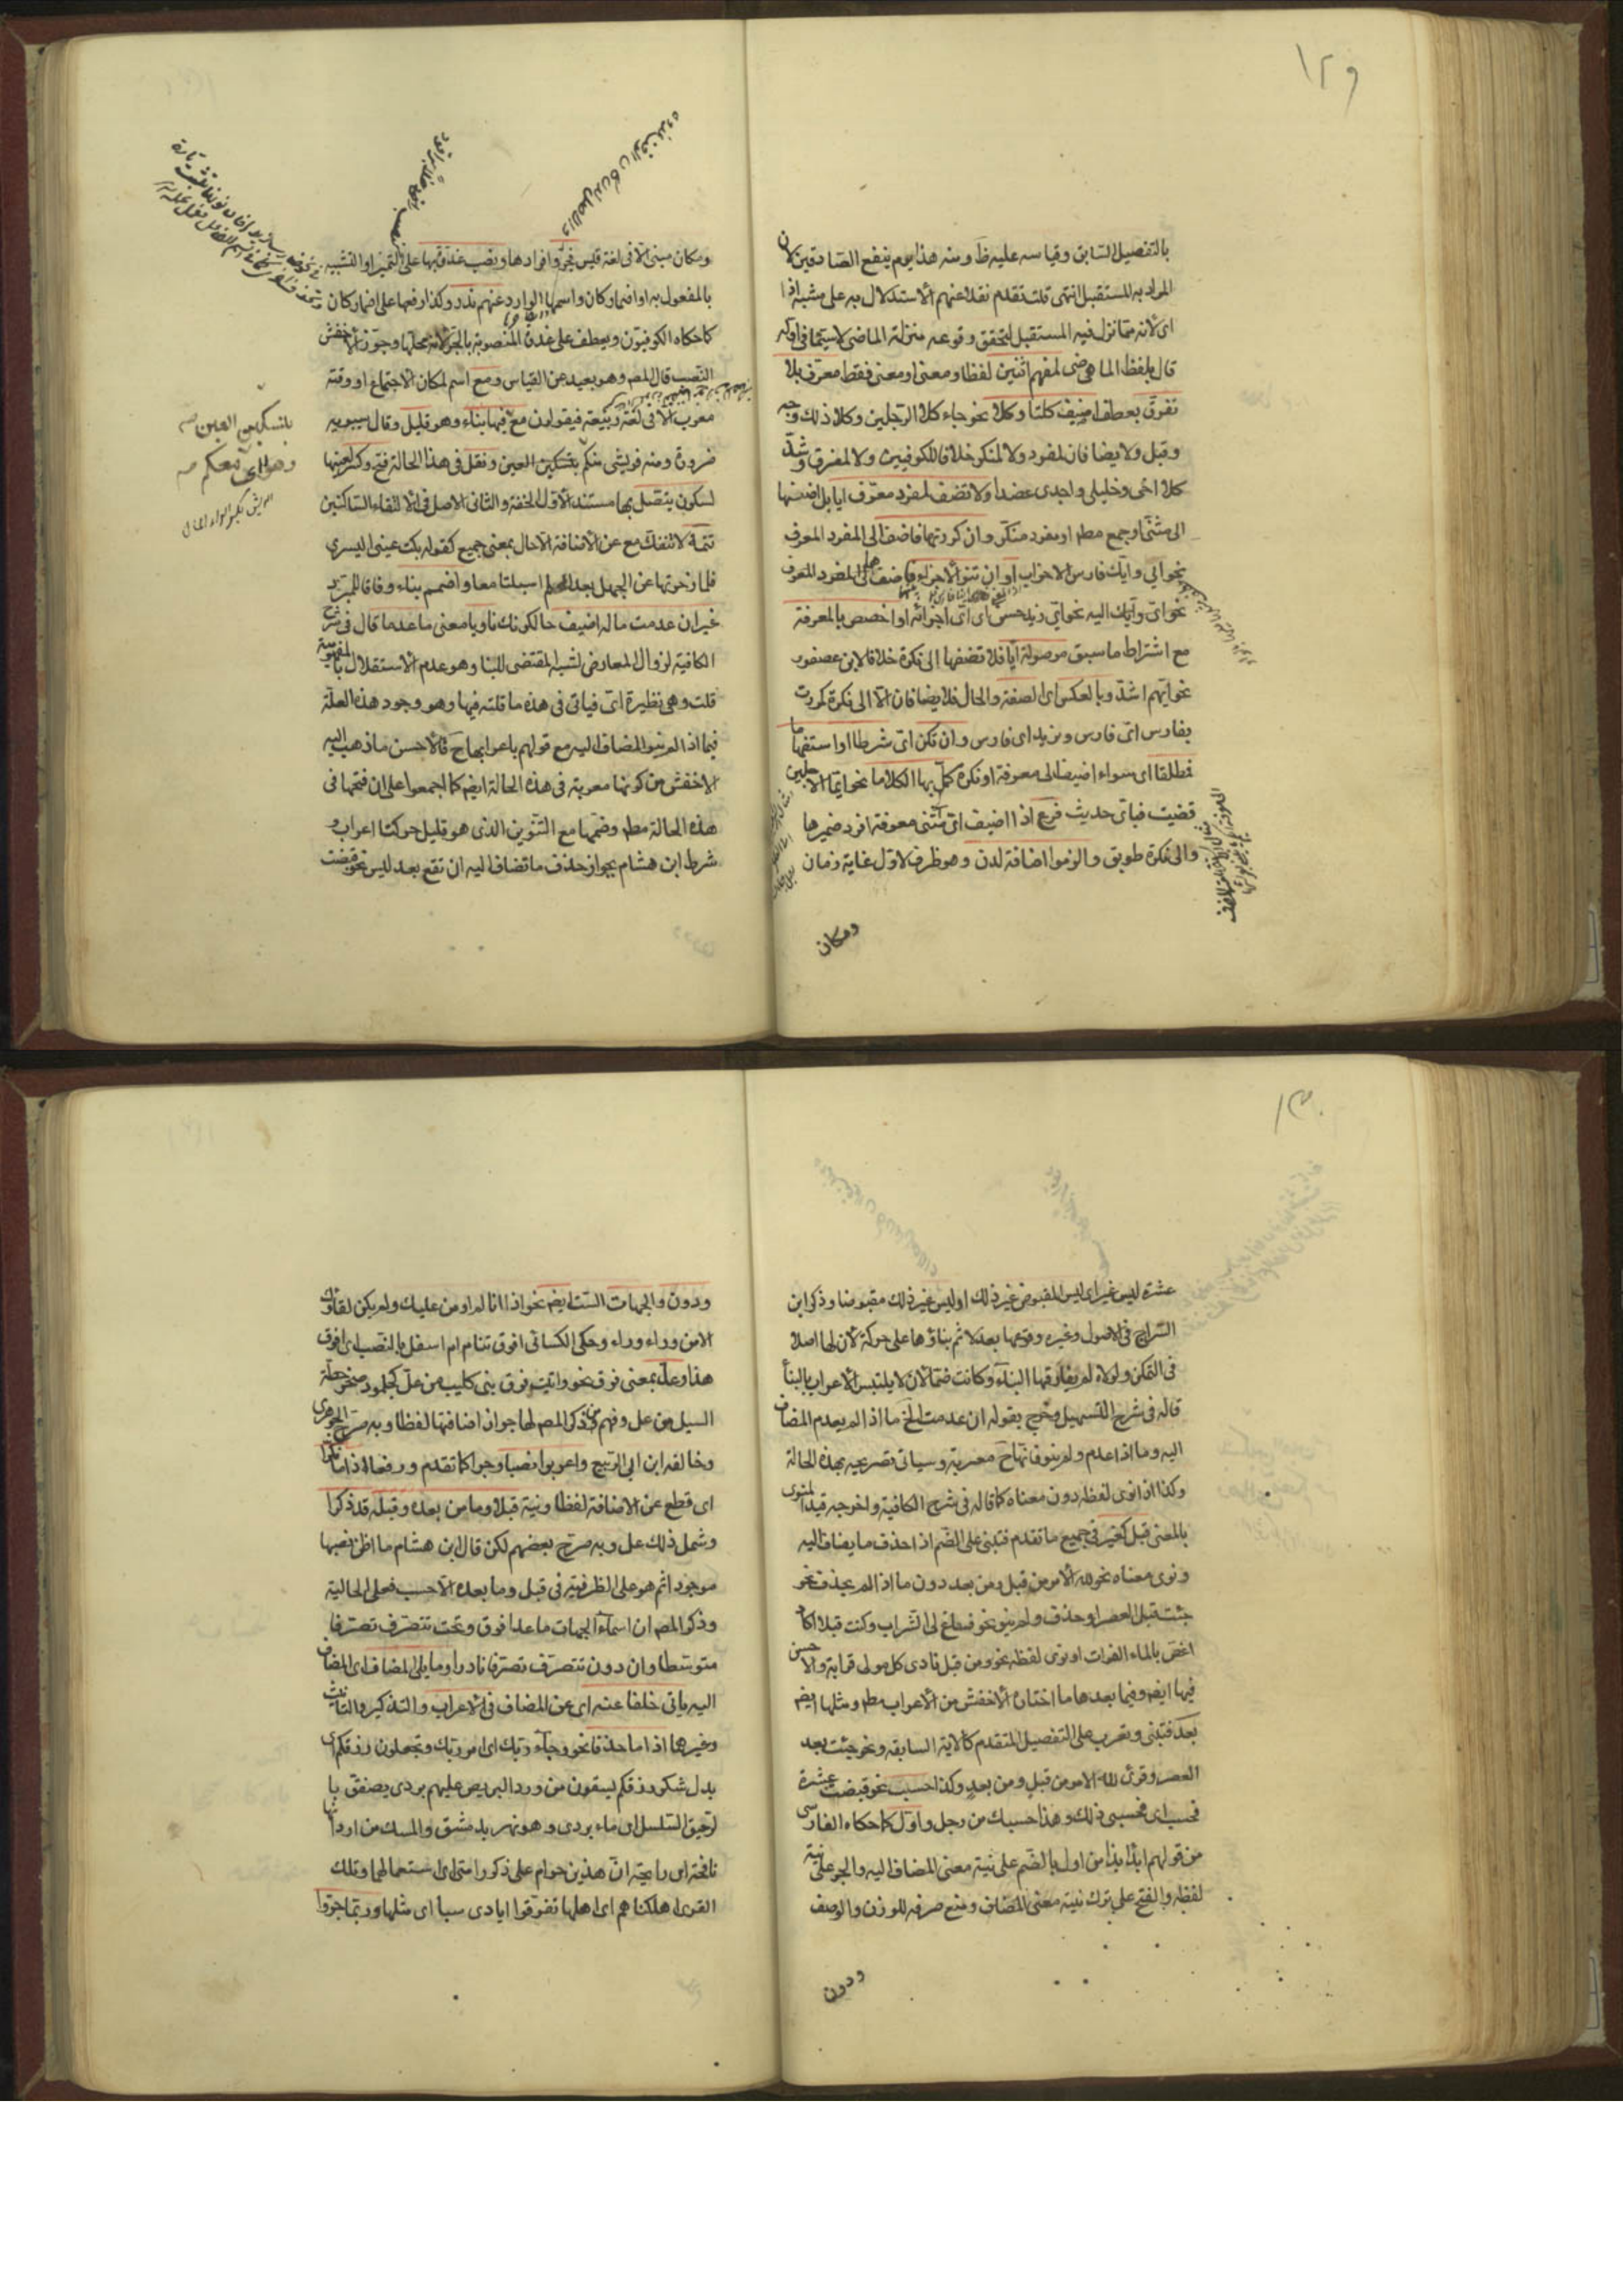 ١٢٩
بالتفصيل السابق وقياسه عليه ظ ومنه هذا يوم ينفع الصادقين لان
المراد به المستقبل انتهى قلت تقدم نقلا عنهم الاستدلال به على مشبه اذا
اى لانه مما نزل فيه المستقبل لتحقق وقوعه منزلة الماضى لا سيما فى اوله
قال بلفظ الماضى لمفهم اثنين لفظا ومعنى او معنى فقط معرف بلا
تفرق بعطف اضيف كلتا وكلا نحو جاء كلا الرجلين وكلا ذلك وجه
وقبل ولا يضافان لمفرد ولا لمنكر خلافا للكوفيين ولا لمفرق وشذ
كلا اخى وخليلى واجدى عضدا ولا تضف لمفرد معرف ايا بل اضفها
الى مثنى او جمع مطم او مفرد منكر وان كررتها فاضف الى المفرد المعرف
نحو ايى وايك فارس الاحزاب او ان تنو الاجزاء فاضفها الى المفرد المعرف
نحو اى وايك اليه نحو اى زيد حسن اى اى اجزائه او اخصص بالمعرفة
مع اشتراط ما سبق موصولة ايا فلا تضفها الى نكرة خلافا لابن عصفور
نحو ايهم اشد وبالعكس اى الصفة والحال فلا يضافان الا الى نكرة كمررت
بفارس اى فارس وبزيد اى فارس وان تكن اى شرطا او استفهاما
فطلقا اى سواء اضيف الى معرفة او نكرة كمل بها الكلاما نحو ايما الاجلين
قضيت فباى حديث فرع اذا اضيف اى لمثنى معرفة افرد ضميرها
والى نكرة طوبق والزموا اضافة لدن وهو ظرف لاول غاية زمان
ومكان
ومكان مبنى الا فى لغة قيس فجر وافرادها ونصب غدوة بها على التميز او التشبيه
بالمفعول به او اضمار كان واسمها الوارد عنهم ندر وكذا رفعها على اضمار كان
كما حكاه الكوفيون ويعطف على غدوة المنصوبة بالجر لانه محلها وجوز الاخفش
النصب قال المصم وهو بعيد عن القياس ومع اسم لمكان الاجتماع او وقته
معرب الا فى لغة ربيعة فيقولون مع فيها بناء وهو قليل وقال سيبويه
ضرورة ومنه فريشى منكم بتسكين العين ونقل فى هذا الحالة فتح وكسر لعينها
لسكون يتصل بها مستند الاول الخفة والثانى الاصل فى الالتقاء الساكنين
تتمة لا تنفك مع عن الاضافة الا حال بمعنى جميع كقوله بكت عينى اليسرى
فلما زجرتها عن الجهل بعد الحلم اسبلتا معا واضمم بناء وفاقا للمبرد
غير ان عدمت ما له اضيف حالكونك ناويا معنى ما عدما قال فى شرح
الكافية لزوال المعارض لشبه المقتضى للبنا وهو عدم الاستقلال بالمفهومية
قلت وهى نظيرة اى فياتى فى هذه ما قلته فيها وهو وجود هذه العلة
فيما اذا لم ينو المضاف اليه مع قولهم باعرابها ح فالاحسن ما ذهب اليه
الاخفش من كونها معربة فى هذه الحالة ايضم كما اجمعوا على ان فتحها فى
هذه الحالة مطم وضمها مع التنوين الذى هو قليل حركتا اعراب و
شرط ابن هشام بجواز حذف ما تضاف اليه ان تقع بعد ليس نحو قبضت
بتسكين العين
وهواى معكم
١٣٠
عشرة ليس غير اى ليس المقبوض غير ذلك او ليس غير ذلك مقبوضا وذكر ابن
السراج فى الاصول وغيره وقوعها بعد لا ثم بناؤها على حركة لان لها اصلا
فى التمكن ولولاه لم يفارقها البناء وكانت ضما لان لا يلتبس الاعراب بالبنا
قاله فى شرح التسهيل وخرج بقوله ان عدمت الخ ما اذا لم يعدم المضاف
اليه وما اذا عدم ولم ينو فانها ح معربة وسياتى تصريحه بهذه الحالة
وكذا ان نوى لفظه دون معناه كما قاله فى شرح الكافية واخرجه قيد المنوى
بالمعنى قبل كغير فى جميع ما تقدم فتبنى على الضم اذا حذف ما يضاف اليه
ونوى معناه نحو لله الامر من قبل ومن بعد دون ما اذا لم يحذف نحو
جئت قبل العصر او حذف ولم ينو نحو فساغ لى الشراب وكنت قبلا اكاد
اغص بالماء الفرات او نوى لفظه نحو ومن قبل نادى كل مولى قرابة والاحسن
فيها ايضم وفيما بعدها ما اختاره الاخفش من الاعراب مطم ومثلها ايضم
بعد فتبنى وتعرب على التفصيل المتقدم كالاية السابقة ونحو جئت بعد
العصر وقرئ لله الامر من قبل ومن بعد وكذا حسب نحو قبضت عشرة
فحسب اى فحسبى ذلك وهذا حسبك من رجل واول كما حكاه الفارسى
من قولهم ابدا بذا من اول بالضم على نية معنى المضاف اليه والجر على نية
لفظه والفتح على ترك نية معنى المضاف ومنع صرفه للوزن والوصف
ودون
ودون والجهات الست ايضم نحو اذا انا لم اومن عليك ولم يكن لقاؤك
الا من وراء وراء وحكى الكسائى افوق تنام ام اسفل بالنصب اى افوق
هذا وعل بمعنى فوق نحو واتيت فوق بنى كليب من عل كجلمود صخر حطه
السيل من عل وفهم من ذكر المصم لها جواز اضافتها لفظا وبه صرح الجوهرى
وخالفه ابن ابى الربيع واعربوا نصبا وجرا كما تقدم ورفعا اذا ما نكرا
اى قطع عن الاضافة لفظا ونية قبلا وما من بعده وقبله قد ذكرا
وشمل ذلك عل وبه صرح بعضهم لكن قال ابن هشام ما اظن نصبها
موجودا ثم هو على الظرفية فى قبل وما بعده الا حسب فعلى الحالية
وذكر المصم ان اسماء الجهات ما عدا فوق وتحت تتصرف تصرفا
متوسطا وان دون تتصرف تصرفا نادرا وما يلى المضاف اى المضاف
اليه ياتى خلفا عنه اى عن المضاف فى الاعراب والتذكير والتانيث
وغيرها اذا ما حذفا نحو وجاء ربك اى امر ربك وتجعلون رزقكم اى
بدل شكر رزقكم يسقون من ورد البريص عليهم بردى يصفق با
لرحيق السلسل اى ماء بردى وهو نهر بدمشق والمسك من اردانها
نافحة اى رايحة ان هذين حرام على ذكور امتى اى استعمالهما وتلك
القرى اهلكناهم اى اهلها تفرقوا ايادى سبا اى مثلها وربما جروا